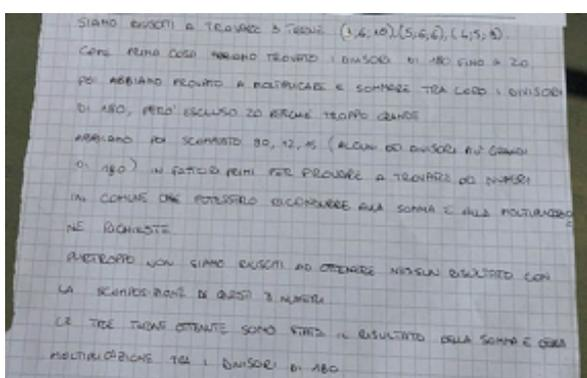 SIAMO RIUSCITI A TROVARE 3 TERNE (3,6,10),(5,6,6),(4,5,9).
COME PRIMA COSA ABBIAMO TROVATO I DIVISORI DI 180 FINO A 20
POI ABBIAMO PROVATO A MOLTIPLICARE E SOMMARE TRA LORO I DIVISORI
DI 180, PERO' ESCLUSO 20 PERCHÉ TROPPO GRANDE
ABBIAMO POI SCOMPOSTO 90, 12, 15 (ALCUNI DEI DIVISORI PIÙ GRANDI
DI 180) IN FATTORI PRIMI PER PROVARE A TROVARE DEI NUMERI
IN COMUNE CHE POTESSERO RICONDURRE ALLA SOMMA E ALLA MOLTIPLICAZIO
NE RICHIESTE.
PURTROPPO NON SIAMO RIUSCITI AD OTTENERE NESSUN RISULTATO CON
LA SCOMPOSIZIONE DI QUESTI 3 NUMERI
LE TRE TERNE OTTENUTE SONO STATE IL RISULTATO DELLA SOMMA E DELLA
MOLTIPLICAZIONE TRA I DIVISORI DI 180